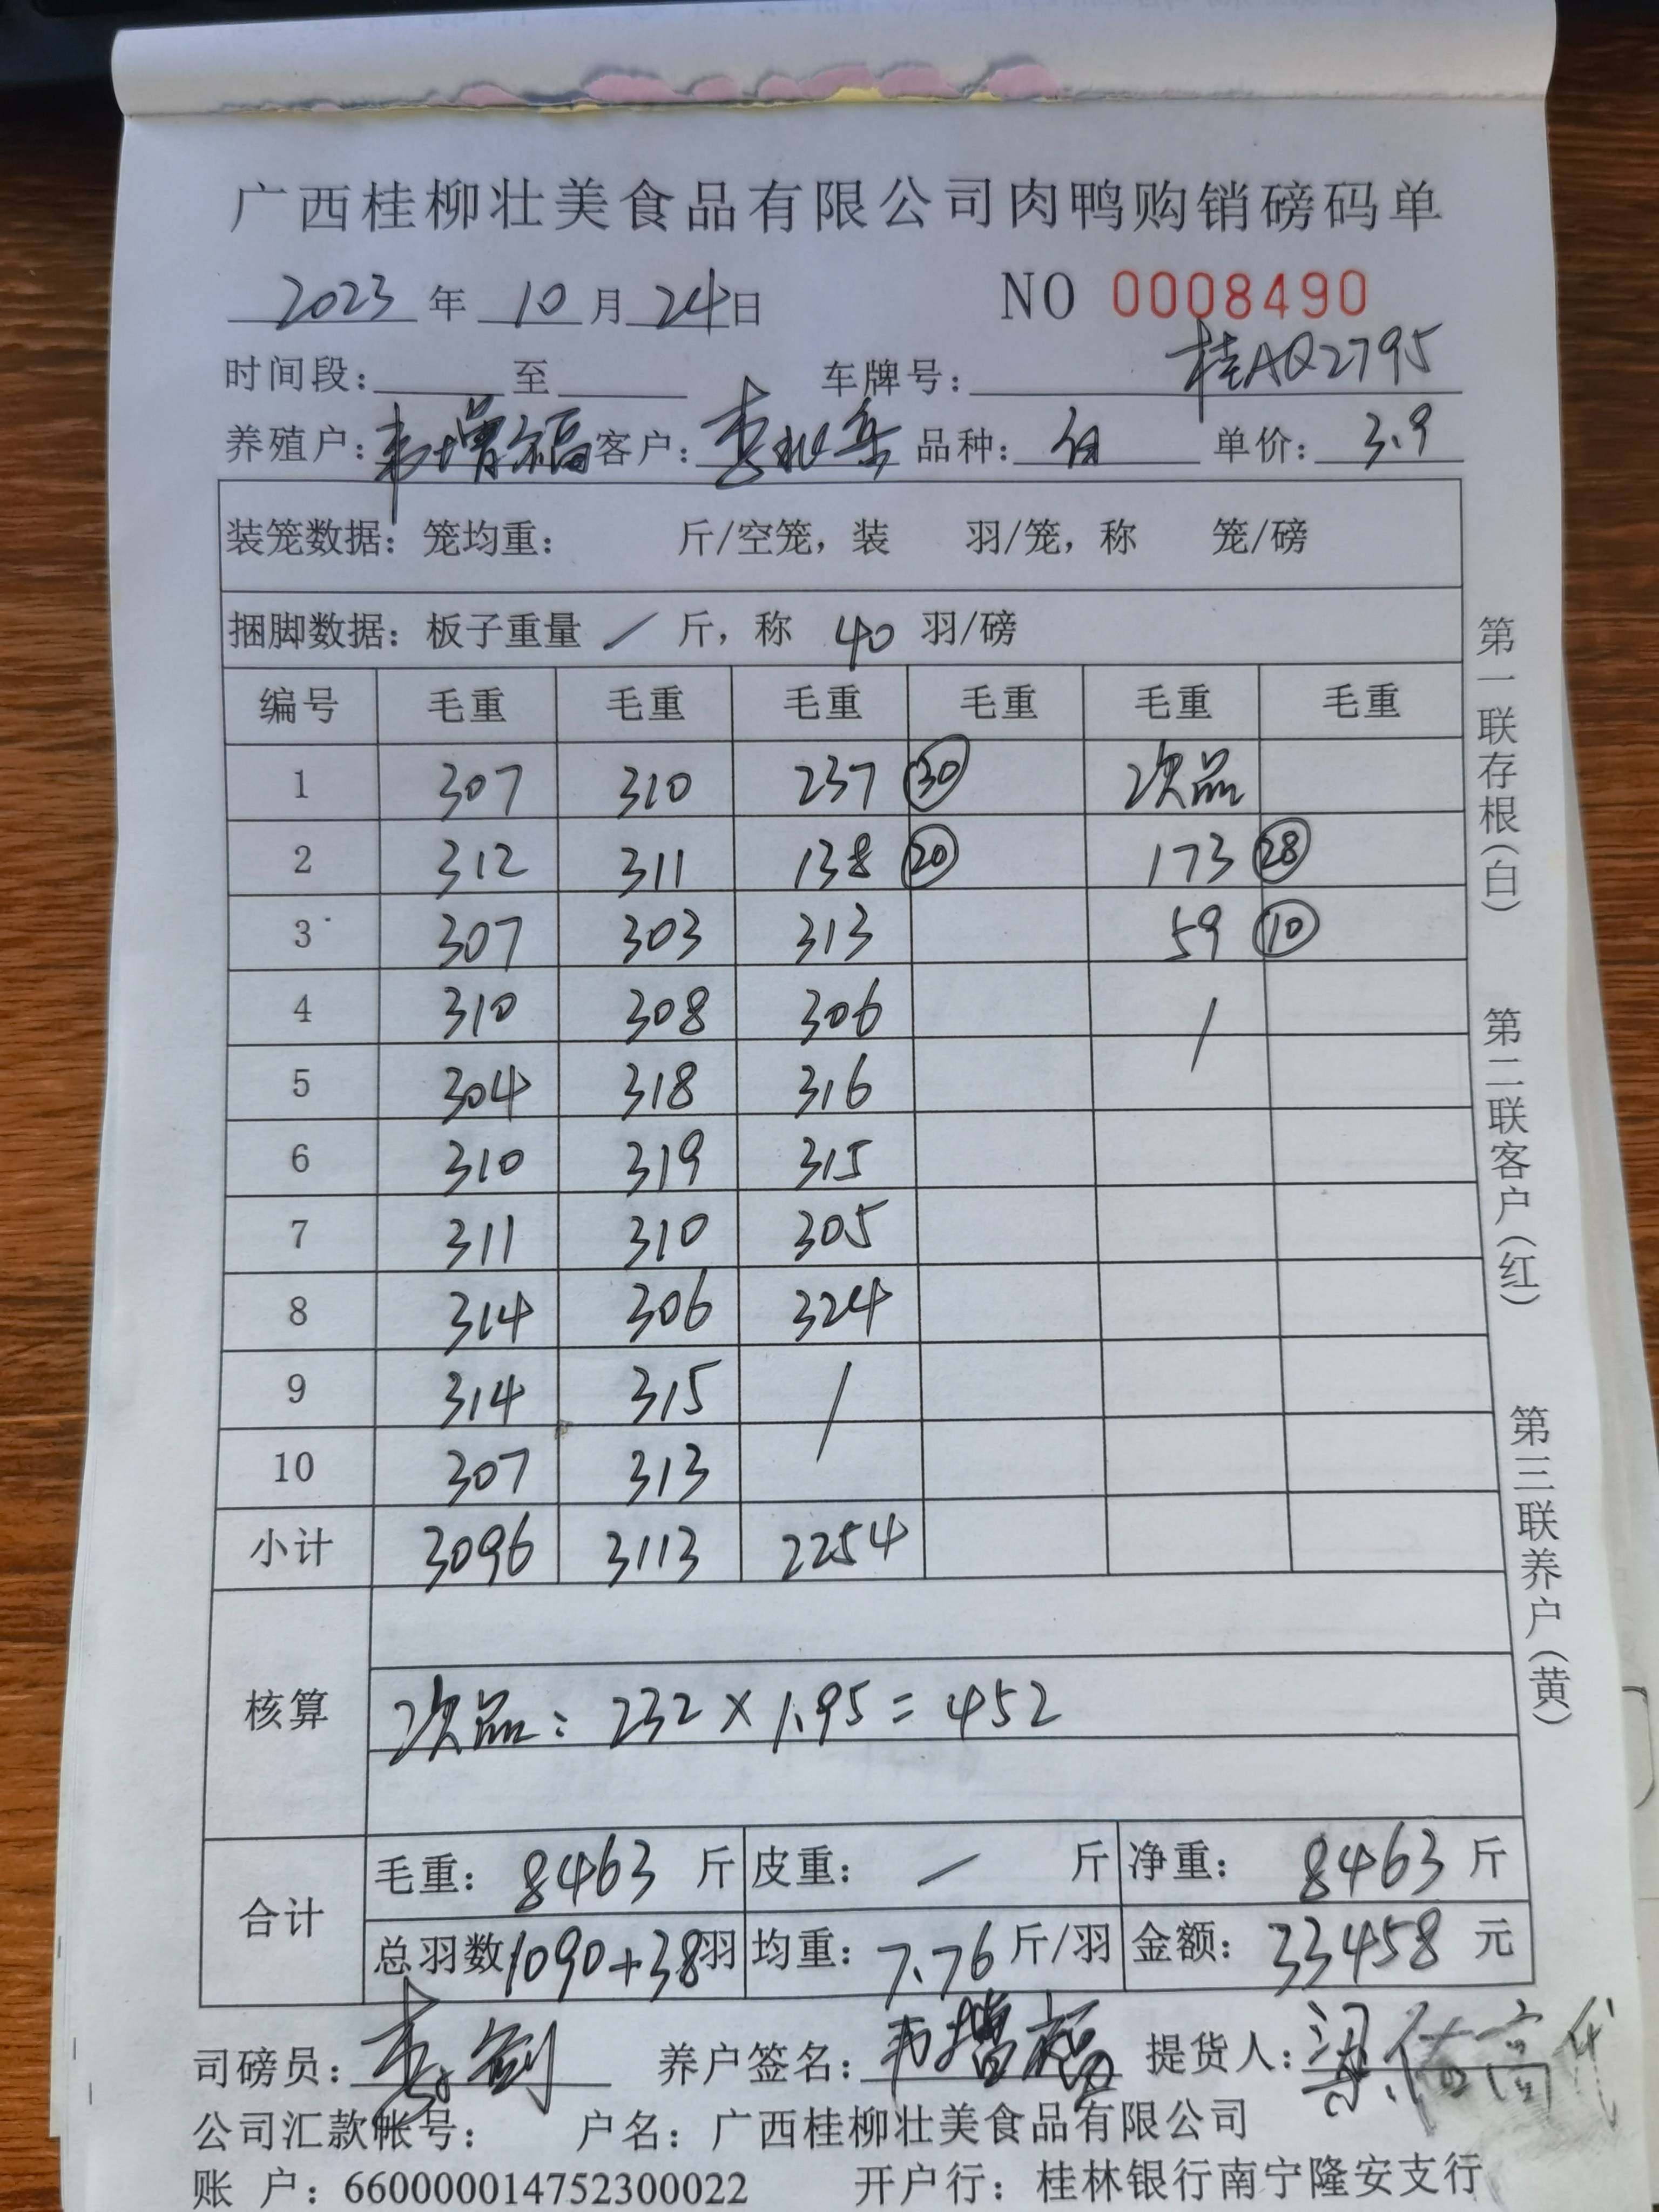 广西桂柳壮美食品有限公司肉鸭购销磅码单
2023 年 10 月 24 日 NO 0008490
时间段: 至 车牌号: 桂AQ2795
养殖户: 韦增福 客户: 李 品种: 白 单价: 3.9
装笼数据: 笼均重: 斤/空笼, 装 羽/笼, 称 笼/磅
捆脚数据: 板子重量 / 斤, 称 40 羽/磅
编号 毛重 毛重 毛重 毛重 毛重 毛重
1 307 310 237 30 次品
2 312 311 138 20 173 28
3 307 303 313 59 10
4 310 308 306 /
5 304 318 316
6 310 319 315
7 311 310 305
8 314 306 324
9 314 315 /
10 307 313
小计 3096 3113 2254
核算
次品: 232×1.95=452
合计
毛重: 8463 斤 皮重: / 斤 净重: 8463 斤
总羽数 1090+38 羽 均重: 7.76 斤/羽 金额: 33458 元
司磅员: 李剑 养户签名: 韦增福 提货人: 梁 高代
公司汇款帐号: 户名: 广西桂柳壮美食品有限公司
账 户: 660000014752300022 开户行: 桂林银行南宁隆安支行
第一联存根(白) 第二联客户(红) 第三联养户(黄)